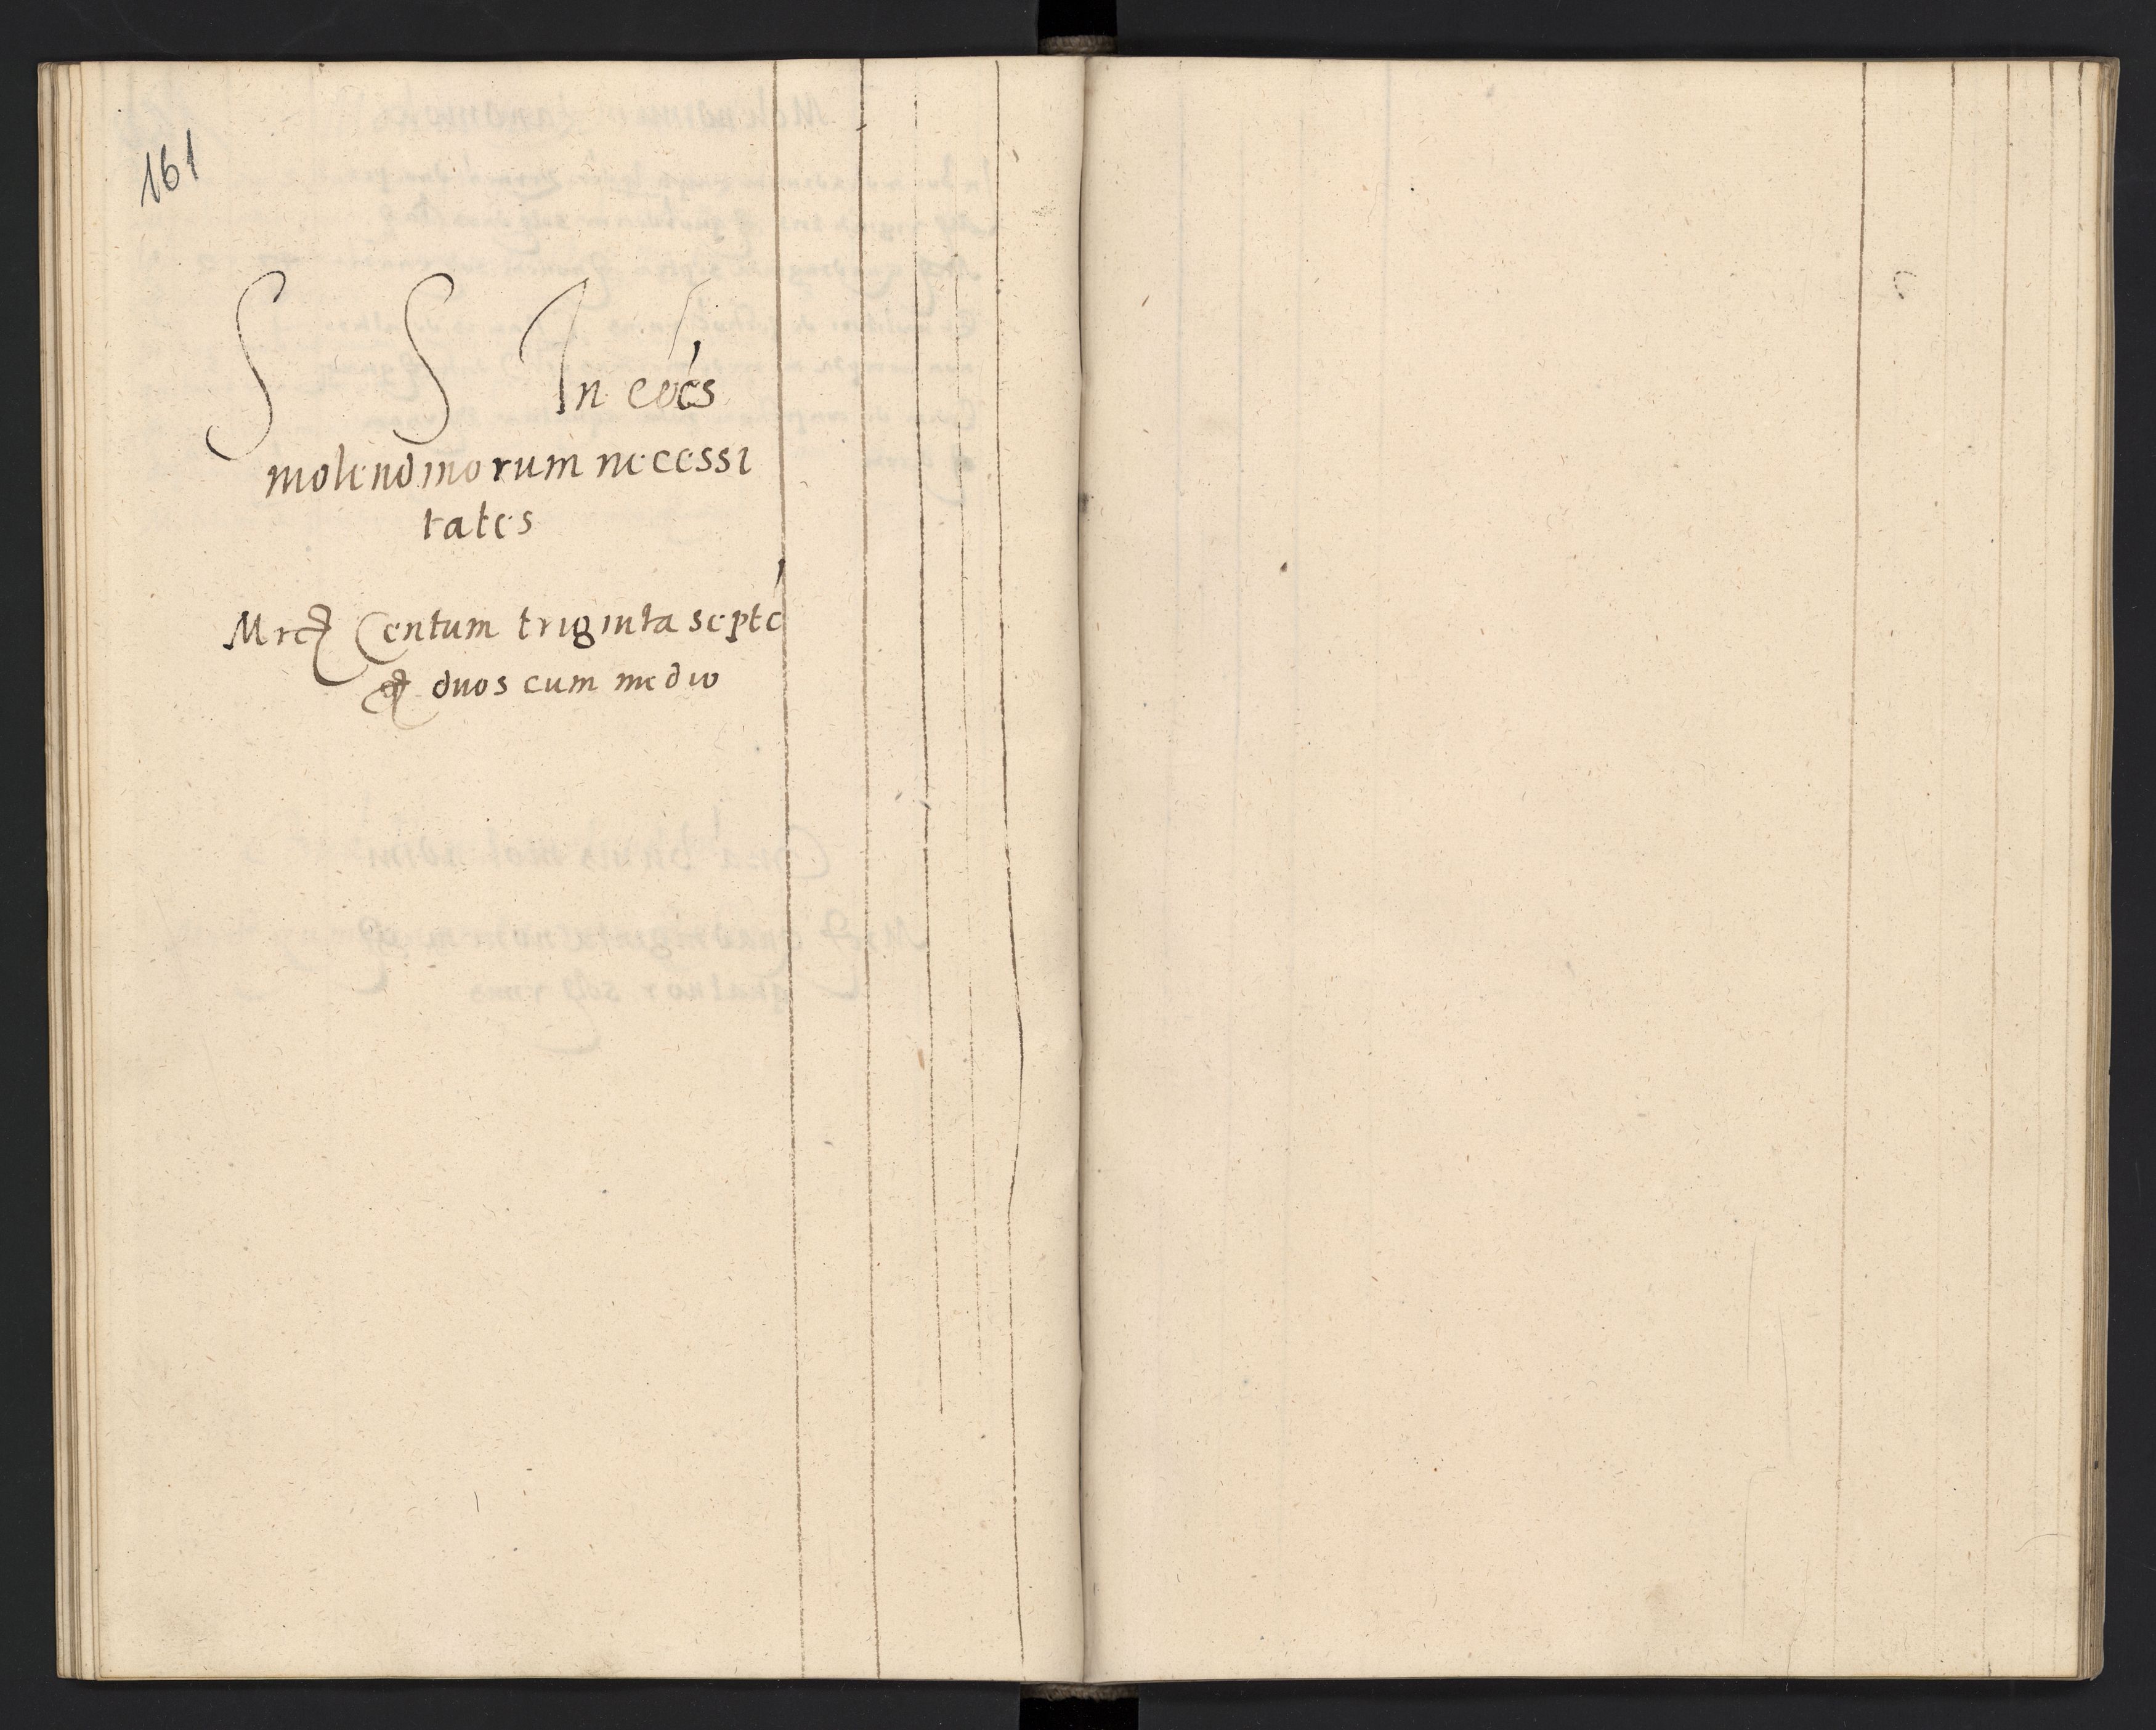 161
S S In eoes
molendinorum necessi
tates
Mrc Centum triginta septe
g duos cum medio